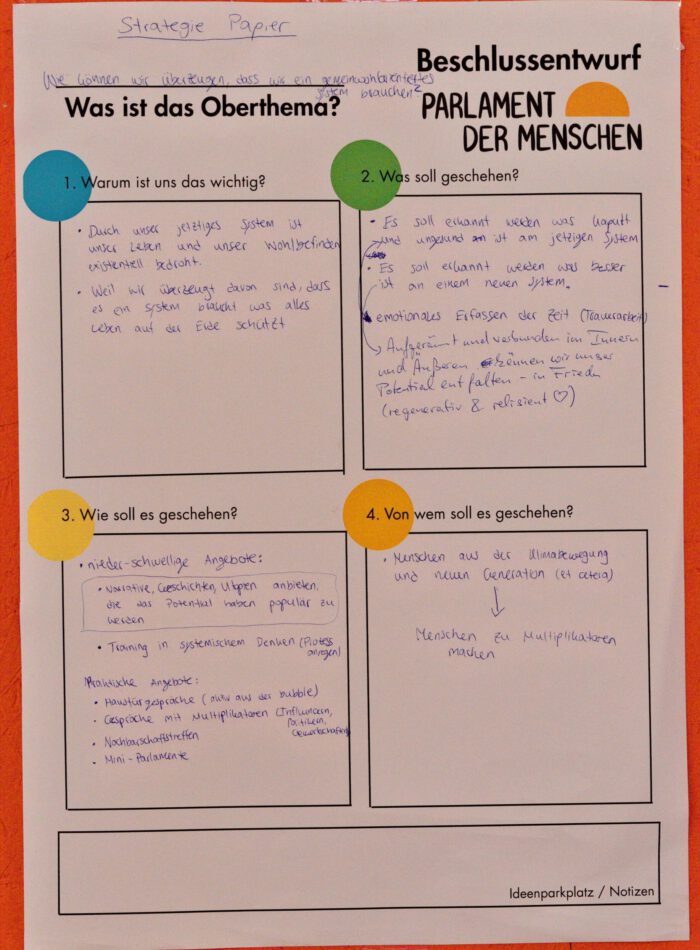 Strategie Papier
Beschlussentwurf
Wie können wir überzeugen, dass wir ein gemeinwohlorientiertes
System brauchen?
Was ist das Oberthema?
PARLAMENT
DER MENSCHEN
1. Warum ist uns das wichtig?
• Durch unser jetziges System ist
unser Leben und unser Wohlbefinden
existentiell bedroht.
• Weil wir überzeugt davon sind, dass
es ein System braucht was alles
Leben auf der Erde schützt
2. Was soll geschehen?
• Es soll erkannt werden was kaputt
und ungesund ist am jetzigen System
• Es soll erkannt werden was besser
ist an einem neuen System.
• emotionales Erfassen der Zeit (Trauerarbeit)
Aufgeräumt und verbunden im Innern
und Äußeren können wir unser
Potential entfalten - in Frieden
(regenerativ & relisient ♡)
3. Wie soll es geschehen?
• nieder-schwellige Angebote:
• Narrative, Geschichten, Utopien anbieten,
die das Potential haben populär zu
werden
• Training in systemischem Denken (Prozess
anregen)
Praktische Angebote:
• Haustürgespräche (aktiv aus der bubble)
• Gespräche mit Multiplikatoren (Influencern,
Politikern,
• Nachbarschaftstreffen
• Mini-Parlamente
4. Von wem soll es geschehen?
• Menschen aus der Klimabewegung
und neuen Generation (et cetera)
↓
Menschen zu Multiplikatoren
machen
Ideenparkplatz / Notizen